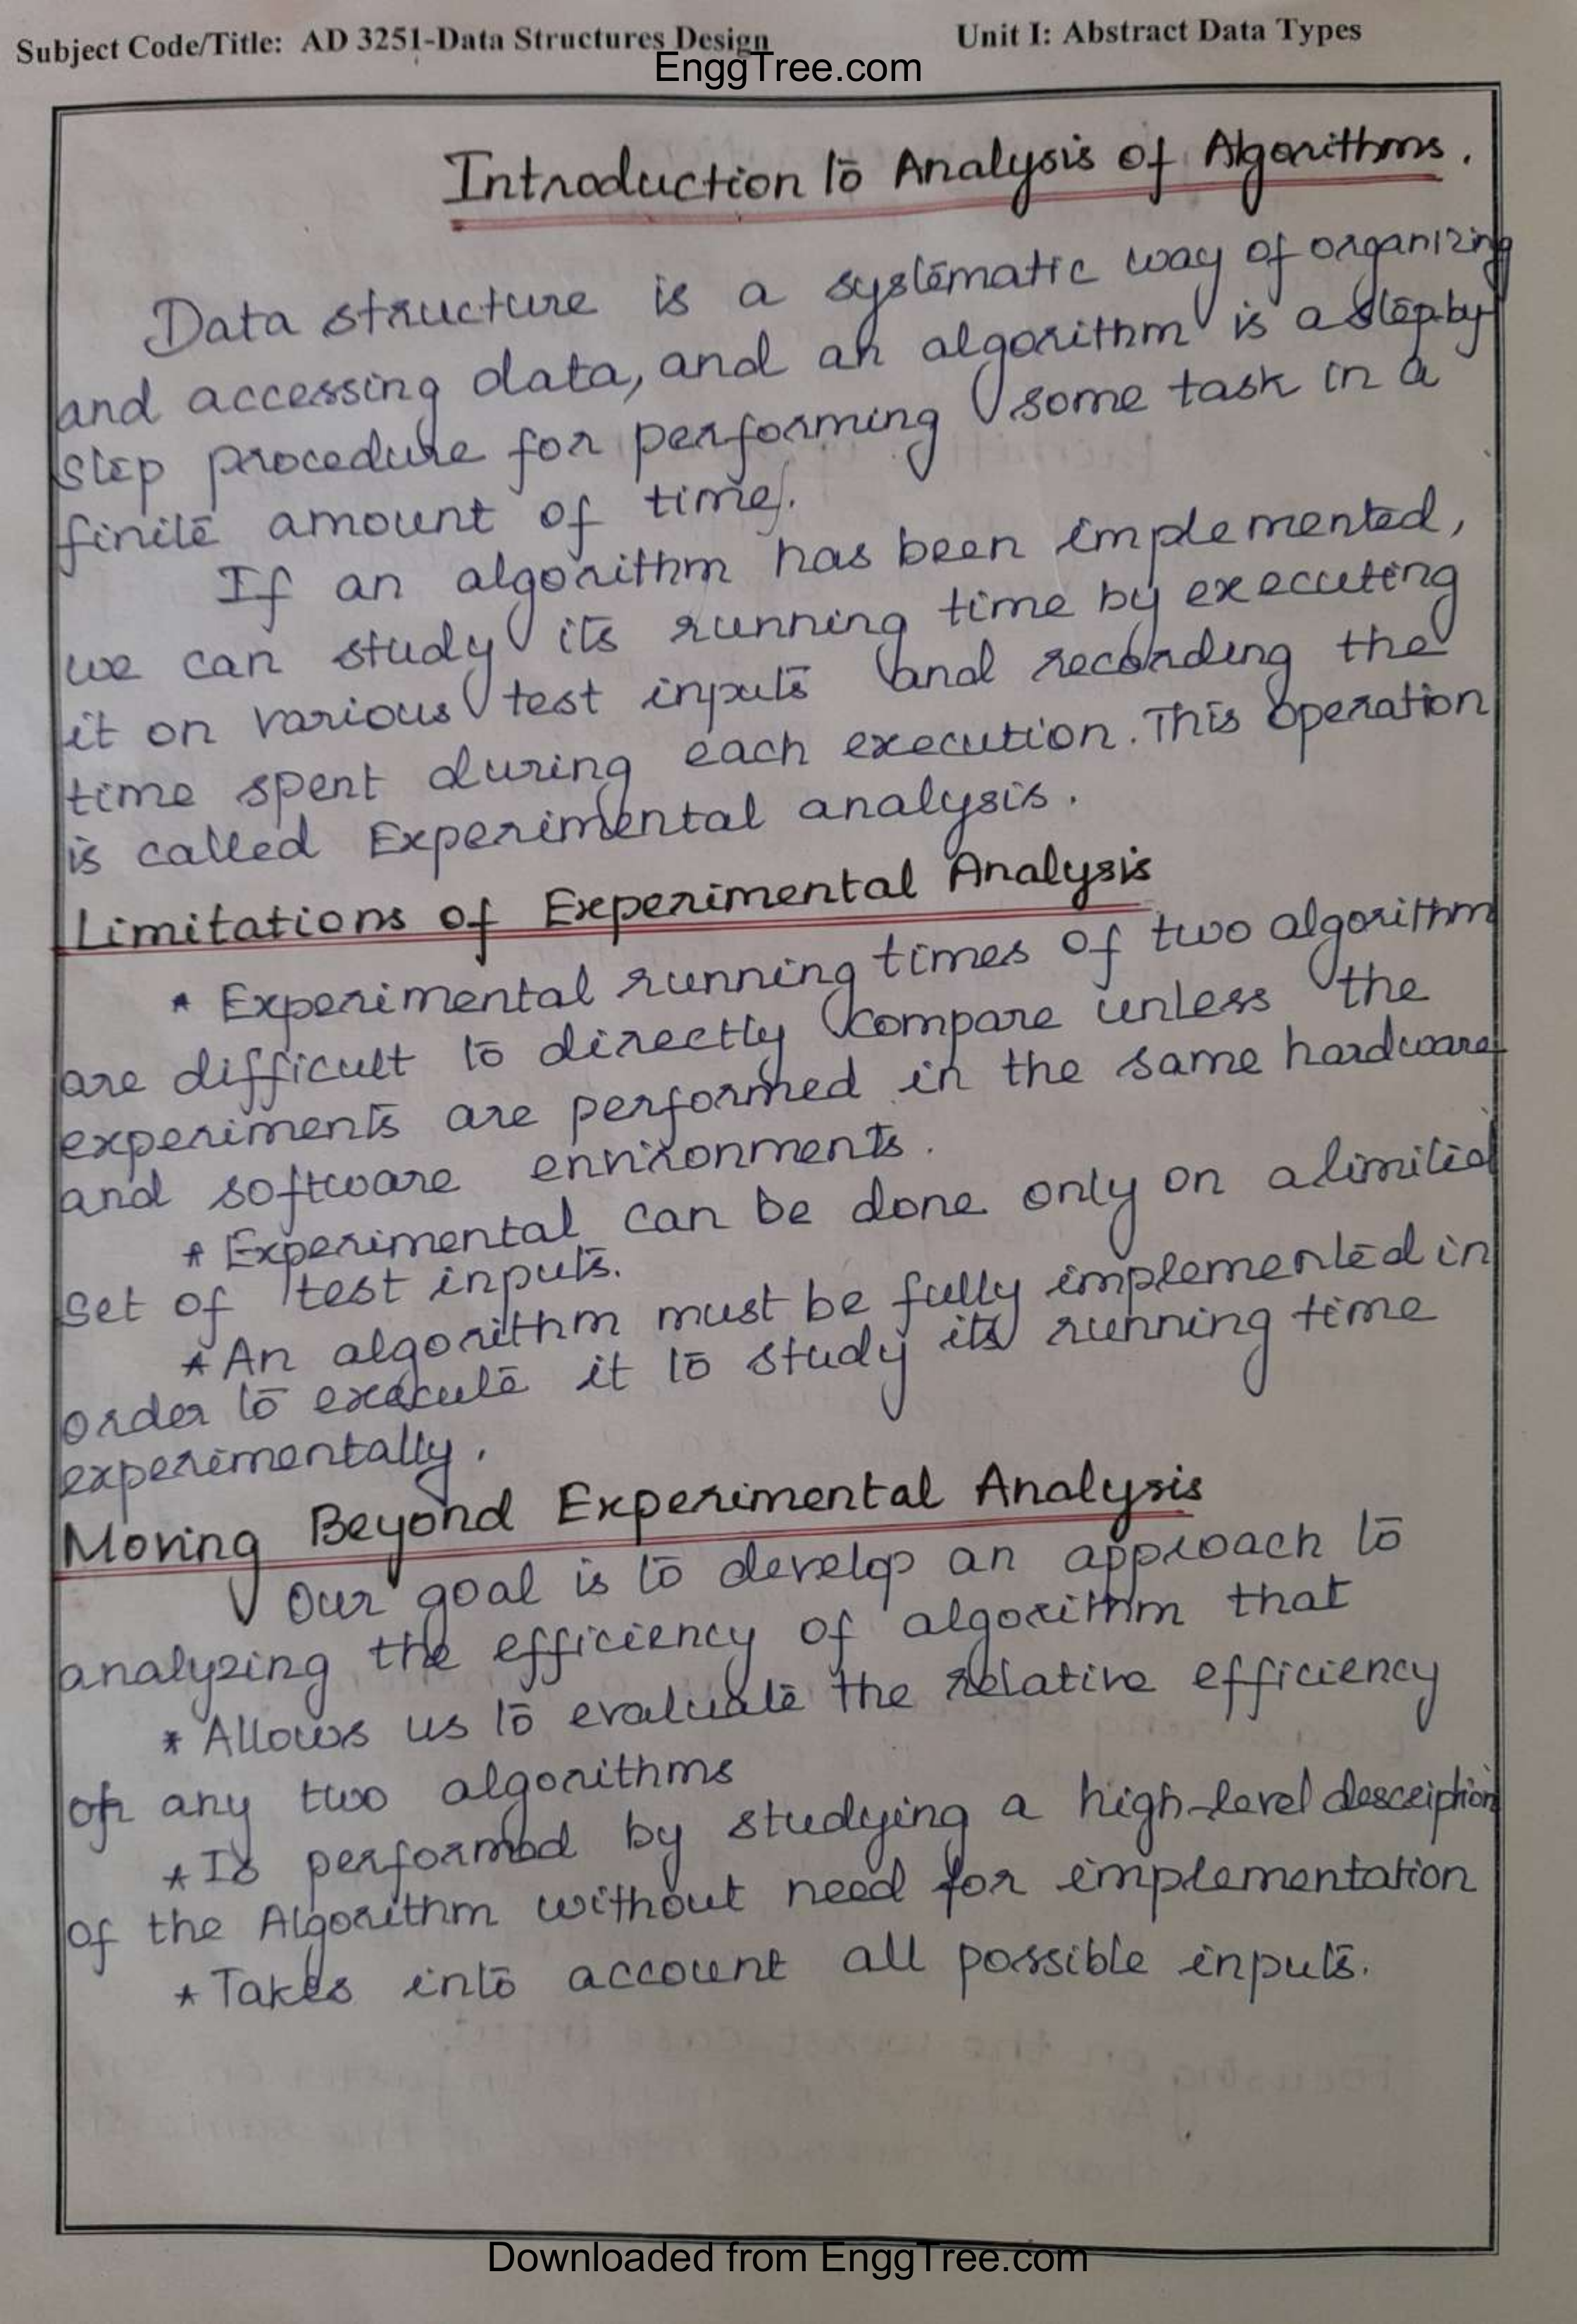 Subject Code/Title: AD 3251-Data Structures Design Unit I: Abstract Data Types
EnggTree.com
Introduction to Analysis of Algorithms.
Data structure is a systematic way of organizing
and accessing data, and an algorithm is a step-by
step procedure for performing some task in a
finite amount of time.
If an algorithm has been implemented,
we can study its running time by executing
it on various test inputs and recording the
time spent during each execution. This operation
is called Experimental analysis.
Limitations of Experimental Analysis
* Experimental running times of two algorithm
are difficult to directly compare unless the
experiments are performed in the same hardware
and software environments.
* Experimental can be done only on a limited
set of test inputs.
* An algorithm must be fully implemented in
order to execute it to study its running time
experimentally.
Moving Beyond Experimental Analysis
Our goal is to develop an approach to
analyzing the efficiency of algorithm that
* Allows us to evaluate the relative efficiency
of any two algorithms
* Is performed by studying a high-level description
of the Algorithm without need for implementation
* Takes into account all possible inputs.
Downloaded from EnggTree.com